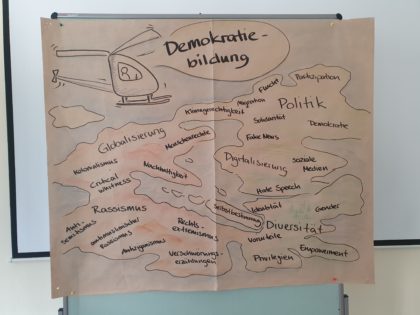 Demokratie-
bildung
Flucht
Partizipation
Migration
Politik
Klimagerechtigkeit
Solidarität
Demokratie
Fake News
Globalisierung
Menschenrechte
Kolonialismus
Nachhaltigkeit
Critical
whitness
Digitalisierung
soziale
Medien
Hate Speech
Rassismus
Anti-
semitismus
antimuslimischer
Rassismus
Antiziganismus
Rechts-
extremismus
Verschwörungs-
erzählungen
Selbstbestimmung
Identität
Gender
Diversität
Vorurteile
Privilegien
Empowerment